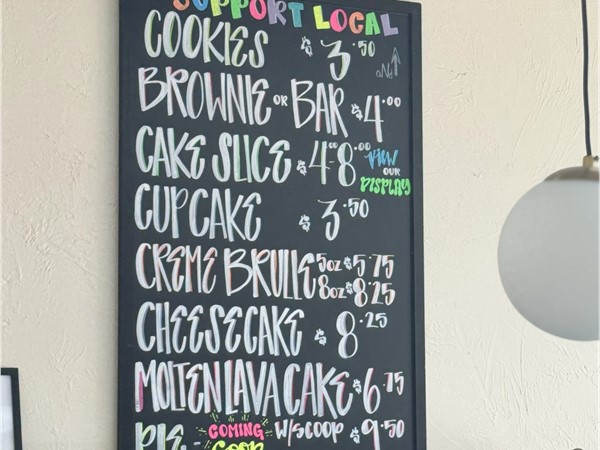 SUPPORT LOCAL
COOKIES $3.50
BROWNIE OR BAR $4.00
CAKE SLICE $4.00-8.00 VIEW OUR DISPLAY
CUPCAKE $3.50
CREME BRULLE 5oz $5.75
8oz $8.25
CHEESECAKE $8.25
MOLTEN LAVA CAKE $6.75
PIE - COMING SOON W/SCOOP $9.50